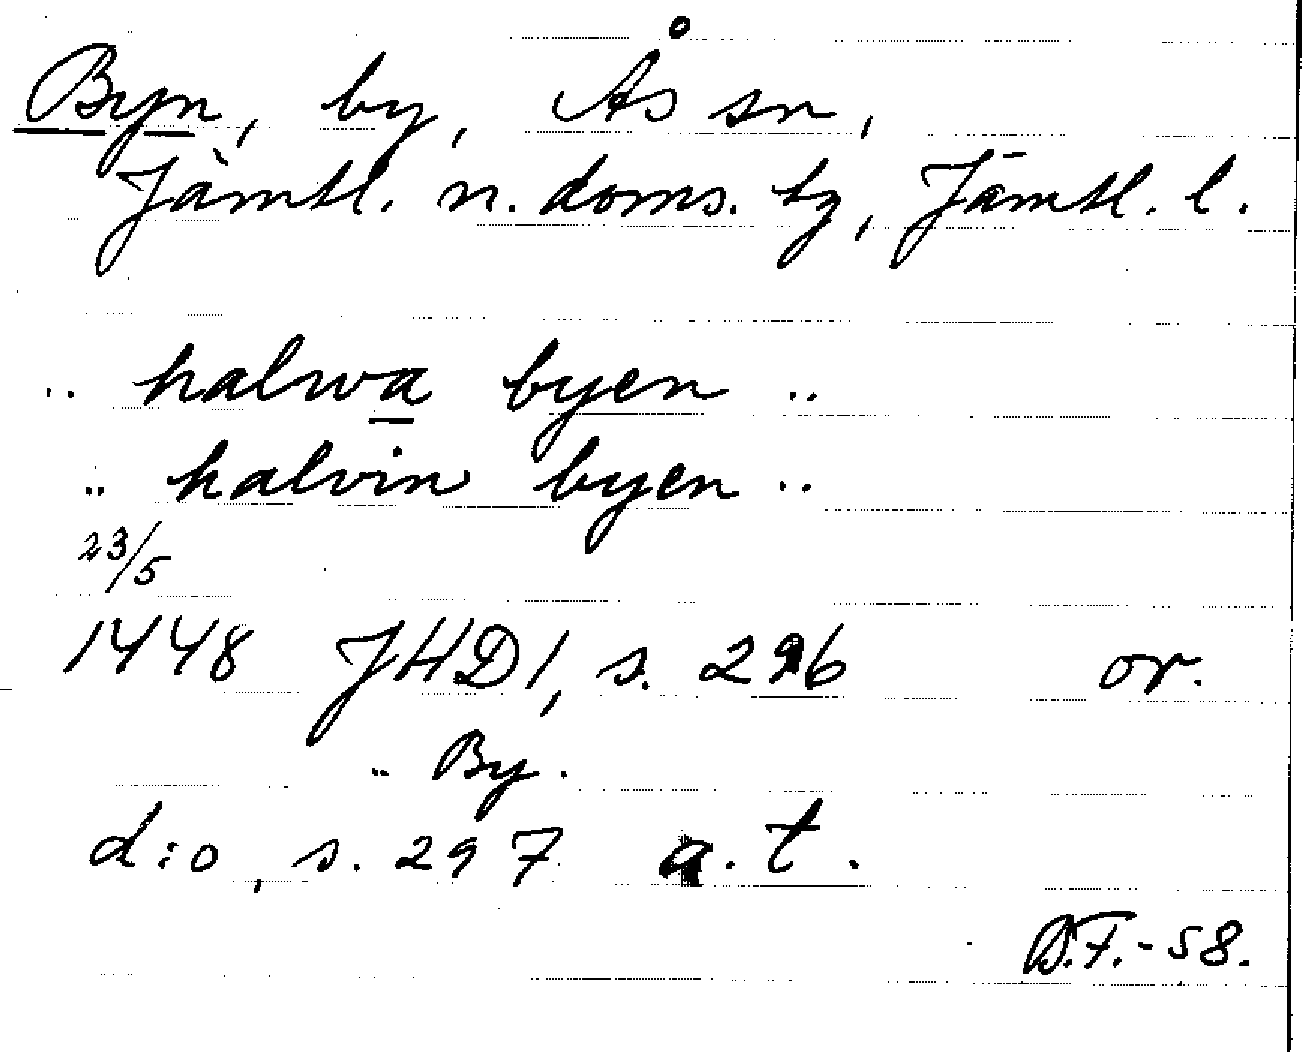 Byn, by, Ås sn,
Jämtl. n. doms. tg, Jämtl. l.
.. halwa byen ..
.. halvin byen ..
23/5
1448 JHD1, s. 296 or.
.. By.
d:o, s. 297 a. t.
B.F.-58.